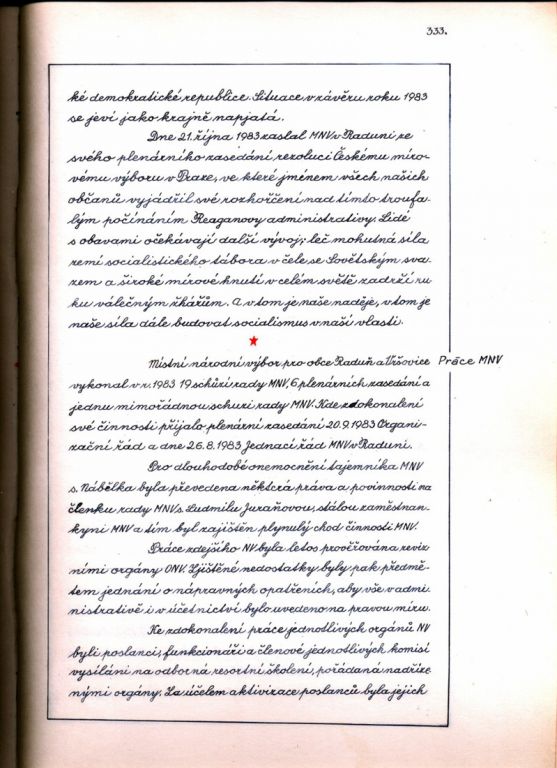 333.
ké demokratické republice. Situace v závěru roku 1983
se jeví jako krajně napjatá.
Dne 21. října 1983 zaslal MNV v Raduni ze
svého plenárního zasedání rezoluci Českému míro-
vému výboru v Praze, ve které jménem všech našich
občanů vyjádřil své rozhořčení nad tímto troufa-
lým počínáním Reaganovy administrativy. Lidé
s obavami očekávají další vývoj; leč mohutná síla
zemí socialistického tábora v čele se Sovětským sva-
zem a široké mírové hnutí v celém světě zadrží ru-
ku válečným žhářům. A v tom je naše naděje, v tom je
naše síla dále budovat socialismus v naší vlasti.
Místní národní výbor pro obce Raduň a Vršovice Práce MNV
vykonal v r. 1983 19 schůzí rady MNV, 6 plenárních zasedání a
jednu mimořádnou schuzi rady MNV. Kde zdokonalení
své činnosti přijalo plenární zasedání 20.9.1983 Organi-
zační řád a dne 26.8.1983 Jednací řád MNV v Raduni.
Pro dlouhodobé onemocnění tajemníka MNV
s. Nábělka byla převedena některá práva a povinnosti na
členku rady MNV s. Ludmilu Juraňovou, stálou zaměstnan-
kyni MNV a tím byl zajištěn plynulý chod činnosti MNV.
Práce zdejšího NV byla letos prověřována reviz-
ními orgány ONV. Zjištěné nedostatky byly pak předmě-
tem jednání o nápravných opatřeních, aby vše v admi-
nistrativě i v účetnictví bylo uvedeno na pravou míru.
Ke zdokonalení práce jednotlivých orgánů NV
byli poslanci, funkcionáři a členové jednotlivých komisí
vysíláni na odborná resortní školení, pořádaná nadříze-
nými orgány. Za účelem aktivizace poslanců byla jejich